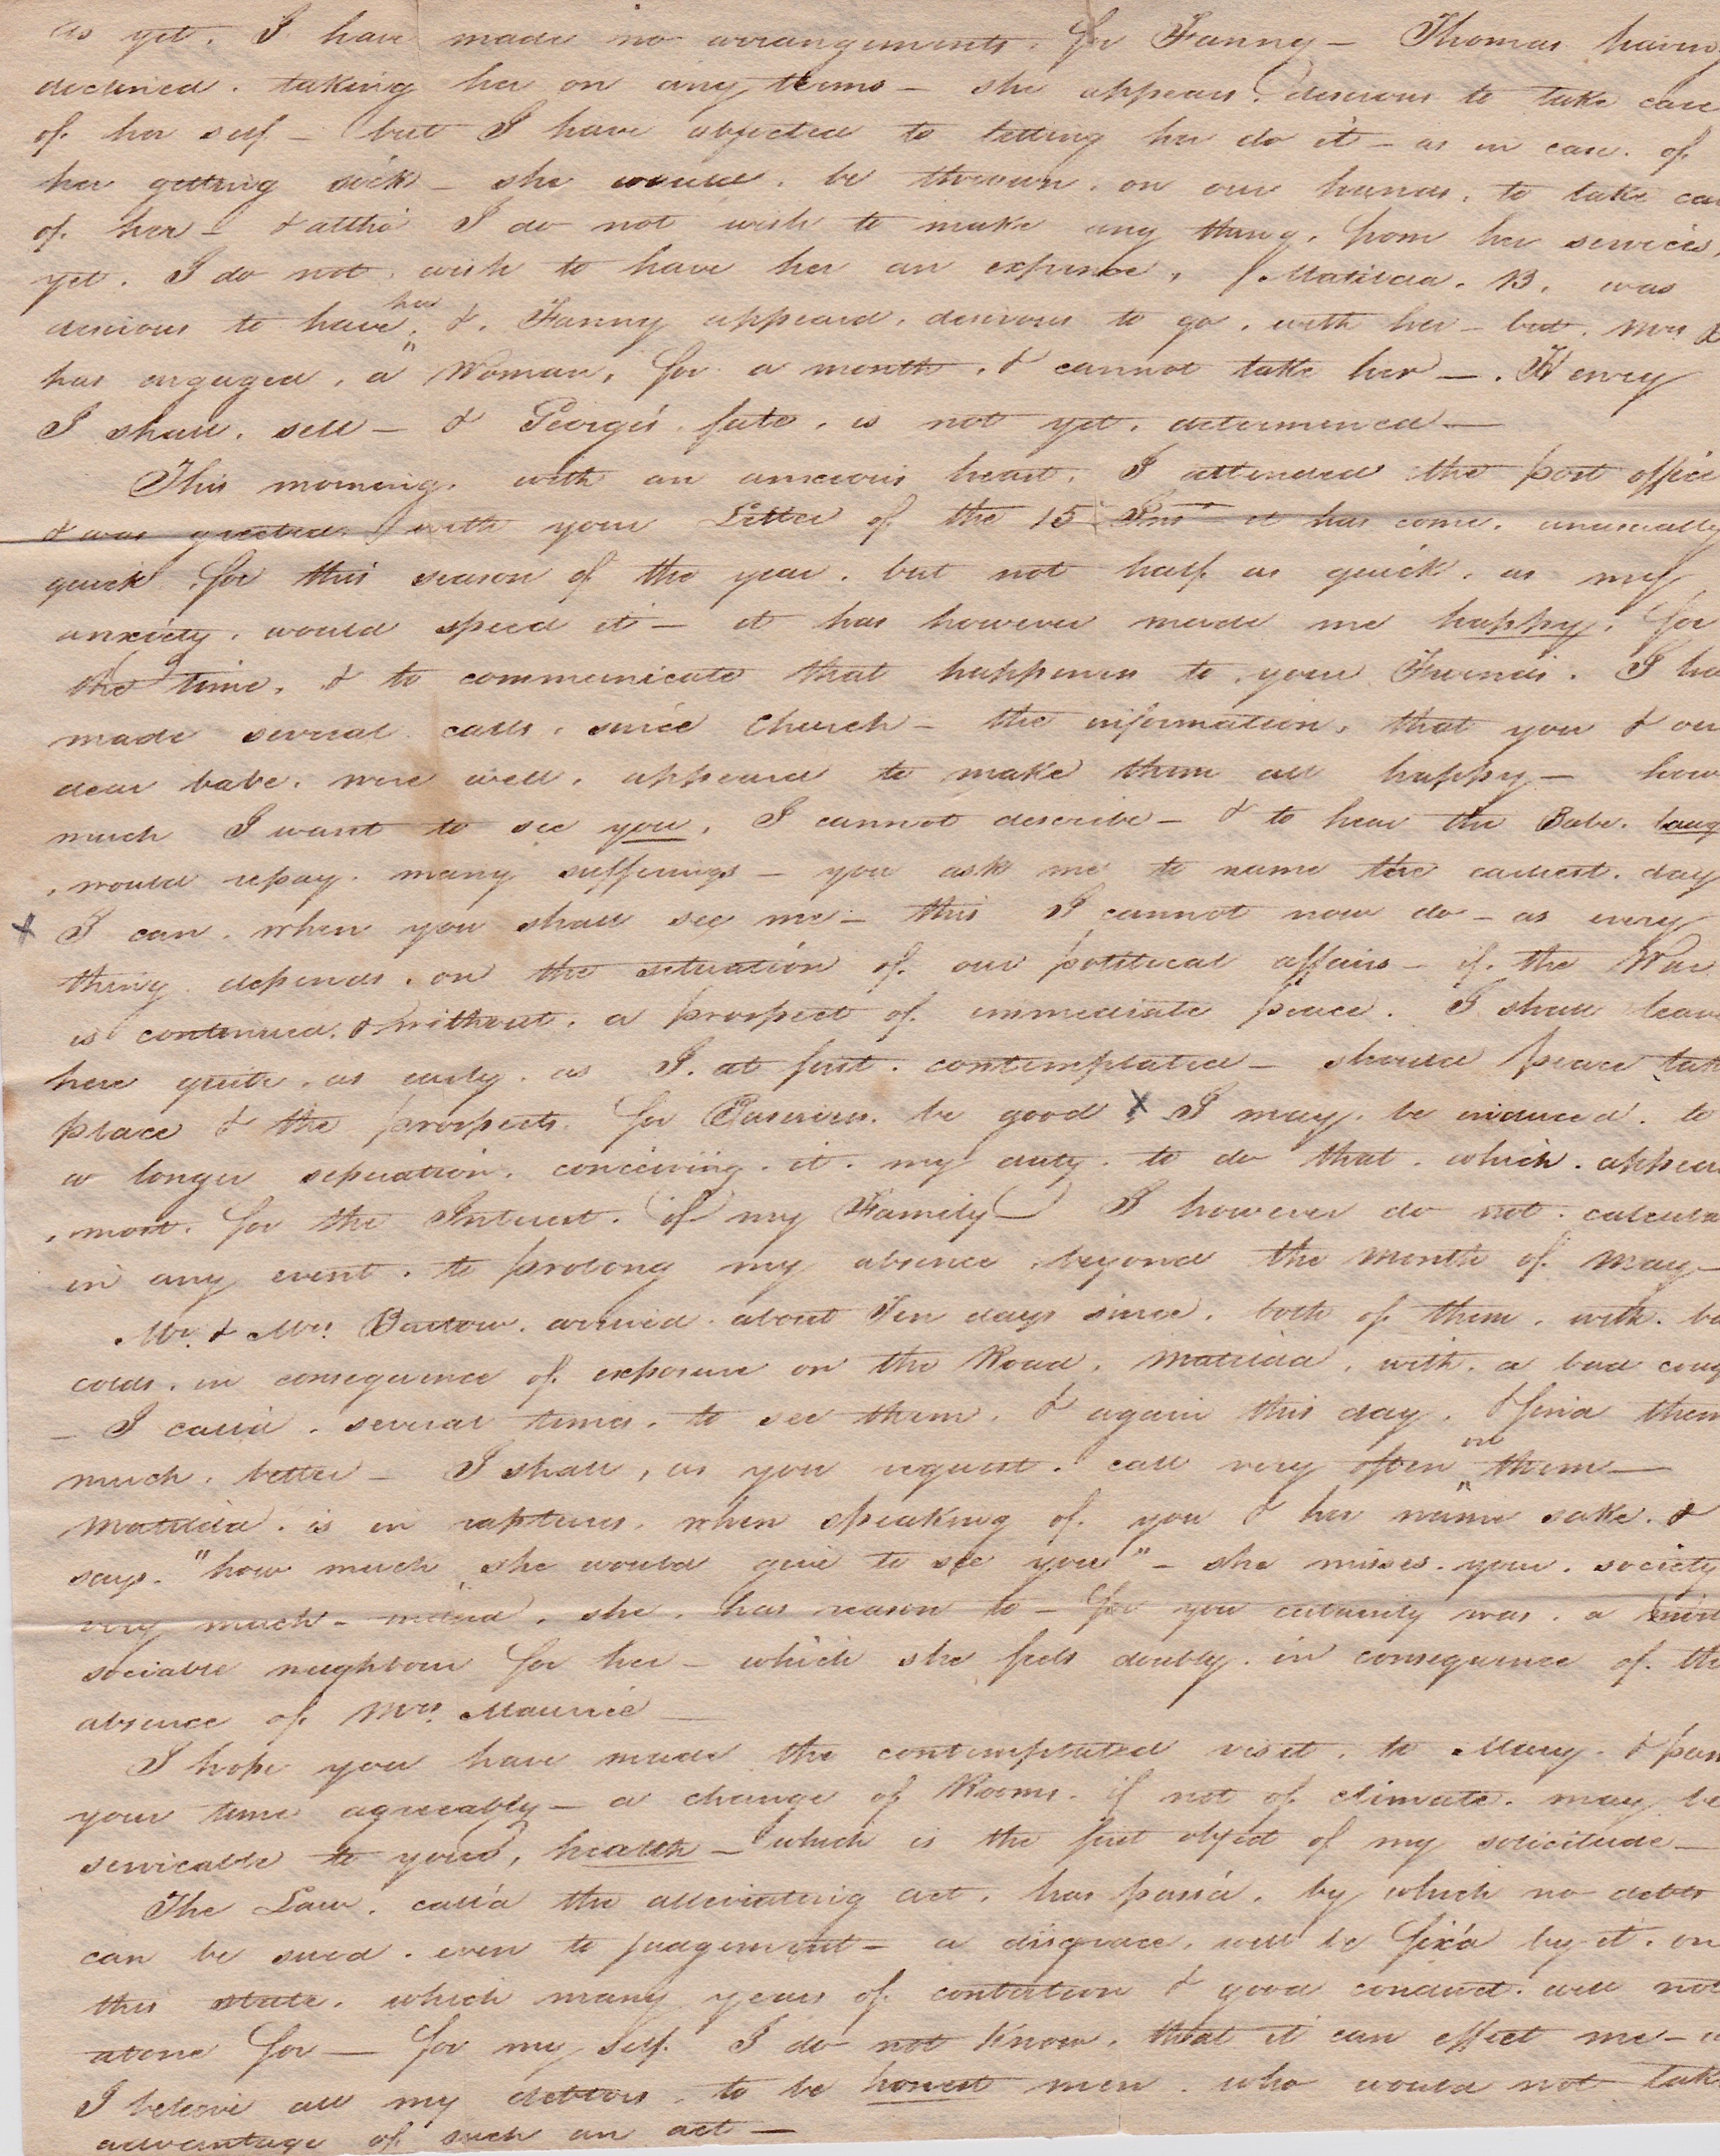 as yet. I have made no arrangements. for Fanny — Thomas having
declined. taking her on any terms — she appears. desirous to take care
of. her self — but I have objected to letting her do it — as in case. of
her getting sick — she would. be thrown. on our hands. to take car
of. her — & altho' I do not wish to make any thing. from her services,
yet. I do not wish to have her an expense, Matilda. B. was
desirous to have her & Fanny appeard. desirous to go. with her — but. Mrs. B
has engaged. a Woman, for a month. & cannot take her —. Henry
I shall. sell — & George's. fate. is not yet. determined —
This morning. with an anxious heart. I attended the post office
& was greeted. with your Letter of the 15 Inst it has come. unusually
quick for this season of the year. but not half as quick. as my
anxiety. would speed it — it has however made me happy. for
the time. & to communicate that happiness to your Friends. I ha
made several calls. since Church — the information, that you & our
dear babe. were well. appeard to make them all happy — how
much I want to see you, I cannot describe — & to hear the Babe. laug
would repay. many sufferings — you ask me to name the earliest. day
x I can. when you shall see me — this I cannot now do — as every
thing. depends. on the situation of. our political affairs — if. the War
is continued. & without. a prospect of immediate peace. I shall leav
here quite. as early. as I. at first. contemplated — should peace tak
place & the prospects. for Business. be good x I may. be induced. to
a longer seperation. conceiving. it. my duty. to do that. which. appear
most. for the Interest. of my Family — I however do not. calcula
in any event. to prolong my absence beyond the Month of. May —
Mr. & Mrs. Bartow. arrived. about Ten days since. both of them. with. ba
colds. in consequence of. exposure on the Road, Matilda, with. a bad coug
— I call'd. several times. to see them. & again this day. & find them
much. better — I shall, as you request. call very often on them —
Matilda. is in raptures. when speaking of. you & her name sake. &
says. "how much she would give to see you" — she misses. your. society
very much — indeed. she. has reason to — for you certainly was. a kind
sociable neighbour for her — which she feels doubly. in consequence of. the
absence of. Mrs. Maurice —
I hope you have made the contemplated visit. to Mary. & pass
your time agreeably — a change of Rooms. if not of climate. may be
servicable to your, health — which is the first object of my solicitude —
The Law. call'd the alleviating act. has pass'd. by which no debts
can be sued. even to judgement — a disgrace. will be fix'd by it. on
this state. which many years of. contrition & good conduct. will not
atone for — for my self. I do not know. that it can effect me — a
I beleive all my debtors. to be honest men. who would not tak
advantage of such an act —